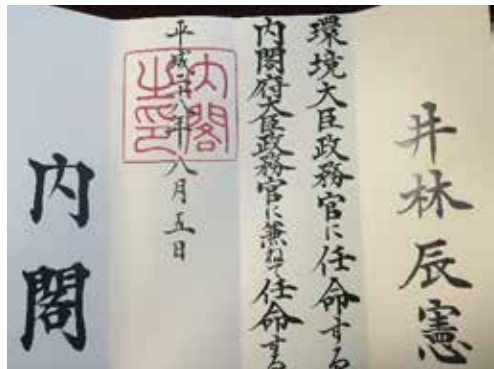 井林辰憲
環境大臣政務官に任命する
内閣府大臣政務官に兼ねて任命する
平成二十八年八月五日
内閣之印
内閣